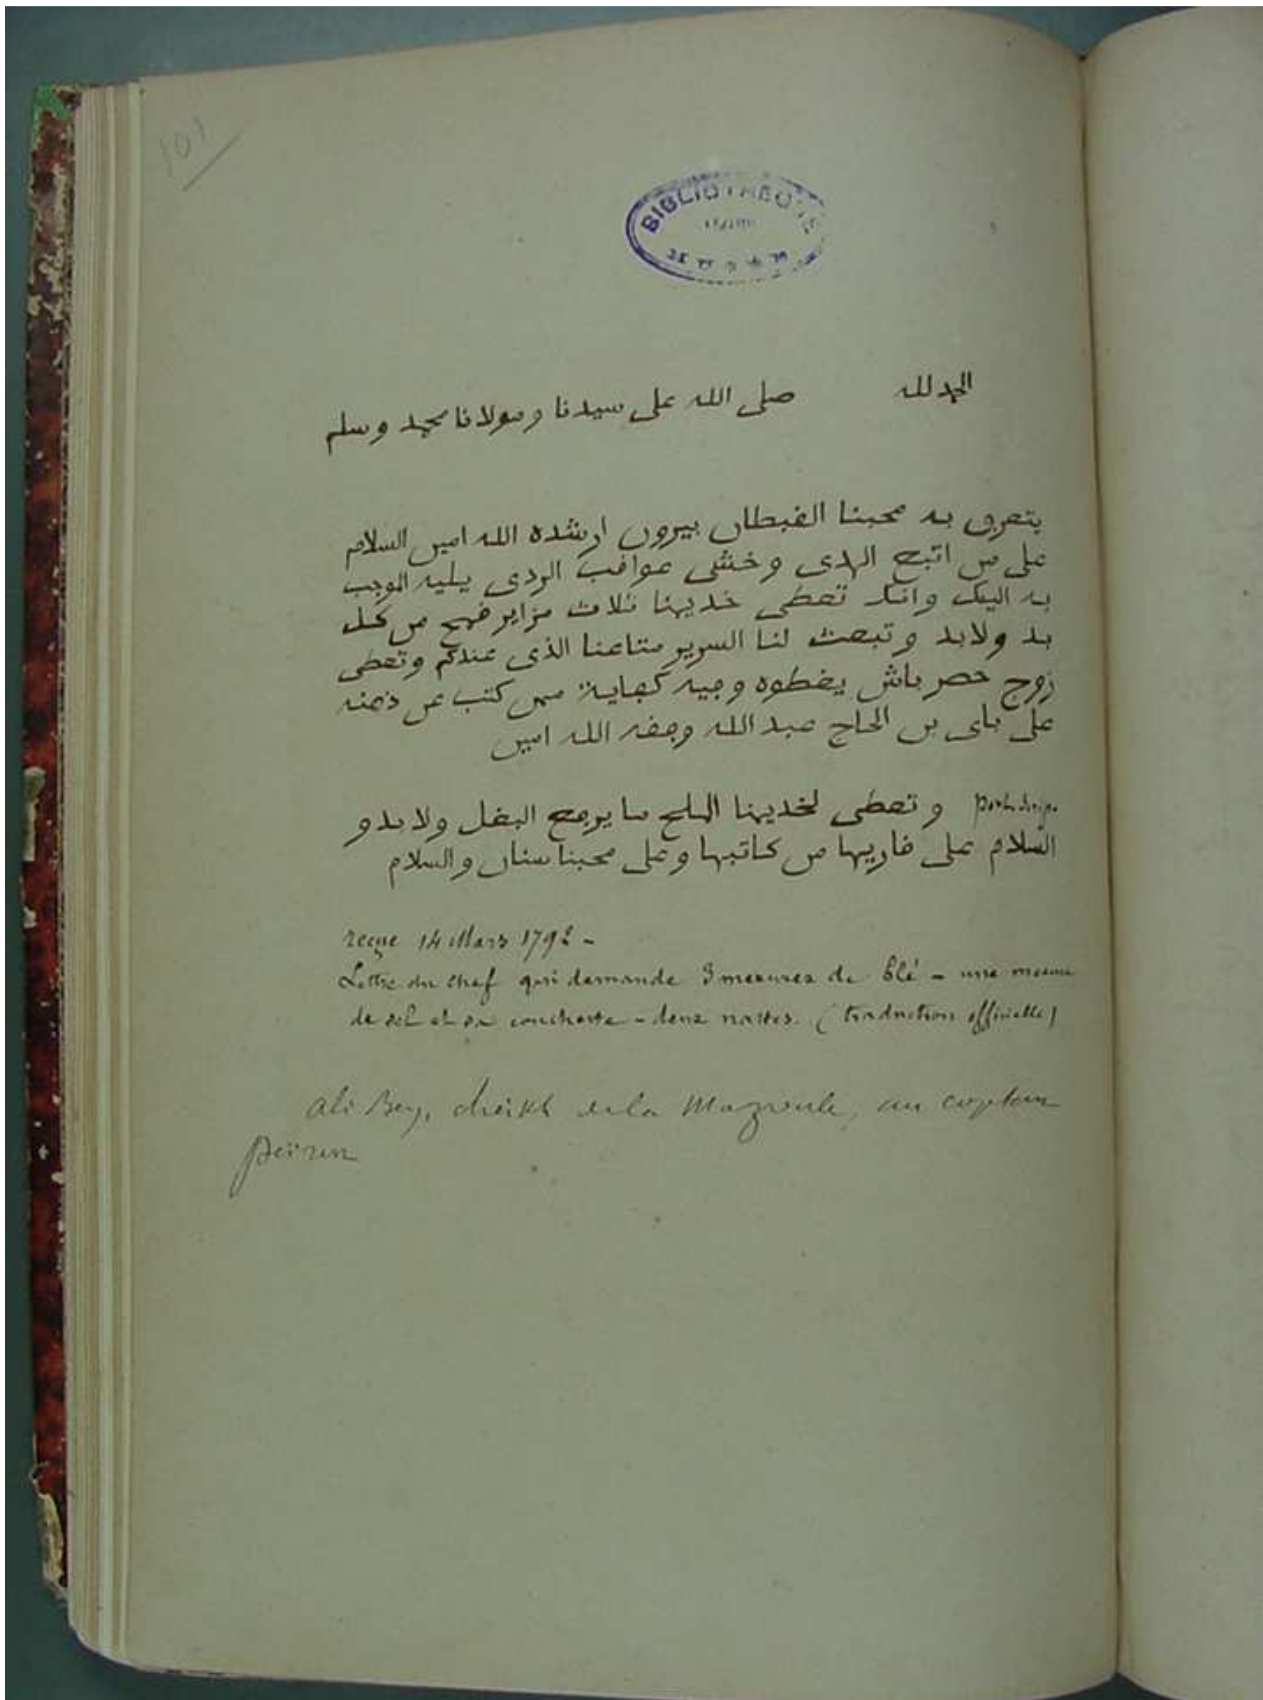 101
BIBLIOTHEQUE
الحمد لله صلى الله على سيدنا ومولانا محمد وسلم
يتعرف به محبنا القبطان بيرون ارشده الله امين السلام
على من اتبع الهدى وخشى عواقب الردى يليه الموجب
به اليك وانك تعطى خديمنا ثلاث مزاير فمح من كل
بد ولابد وتبعث لنا السرير متاعنا الذى عندكم وتعطى
زوج حصر باش يغطوه وفيه كفاية ممن كتب عن ذمنه
على باى بن الحاج عبد الله وفقه الله امين
وتعطى لخديمنا الملح ما يرفع البغل ولا بد و
السلام على قاريها من كاتبها وعلى محبنا سنان والسلام
reçue 14 Mars 1792 -
Lettre du chef qui demande 3 mesures de blé - une mesure
de sel et sa couchette - deux nattes. (traduction officielle)
Ali Bey, cheikh de la Mazoule, au capitain
Peïron